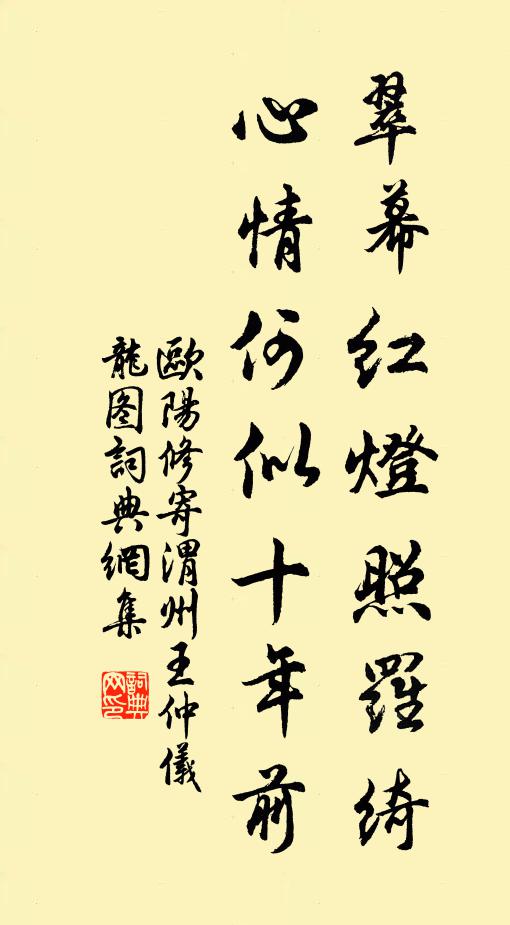 翠幕紅燈照羅綺
心情何似十年前
歐陽修寄渭州王仲儀
龍图詞典網集
詞典
网印